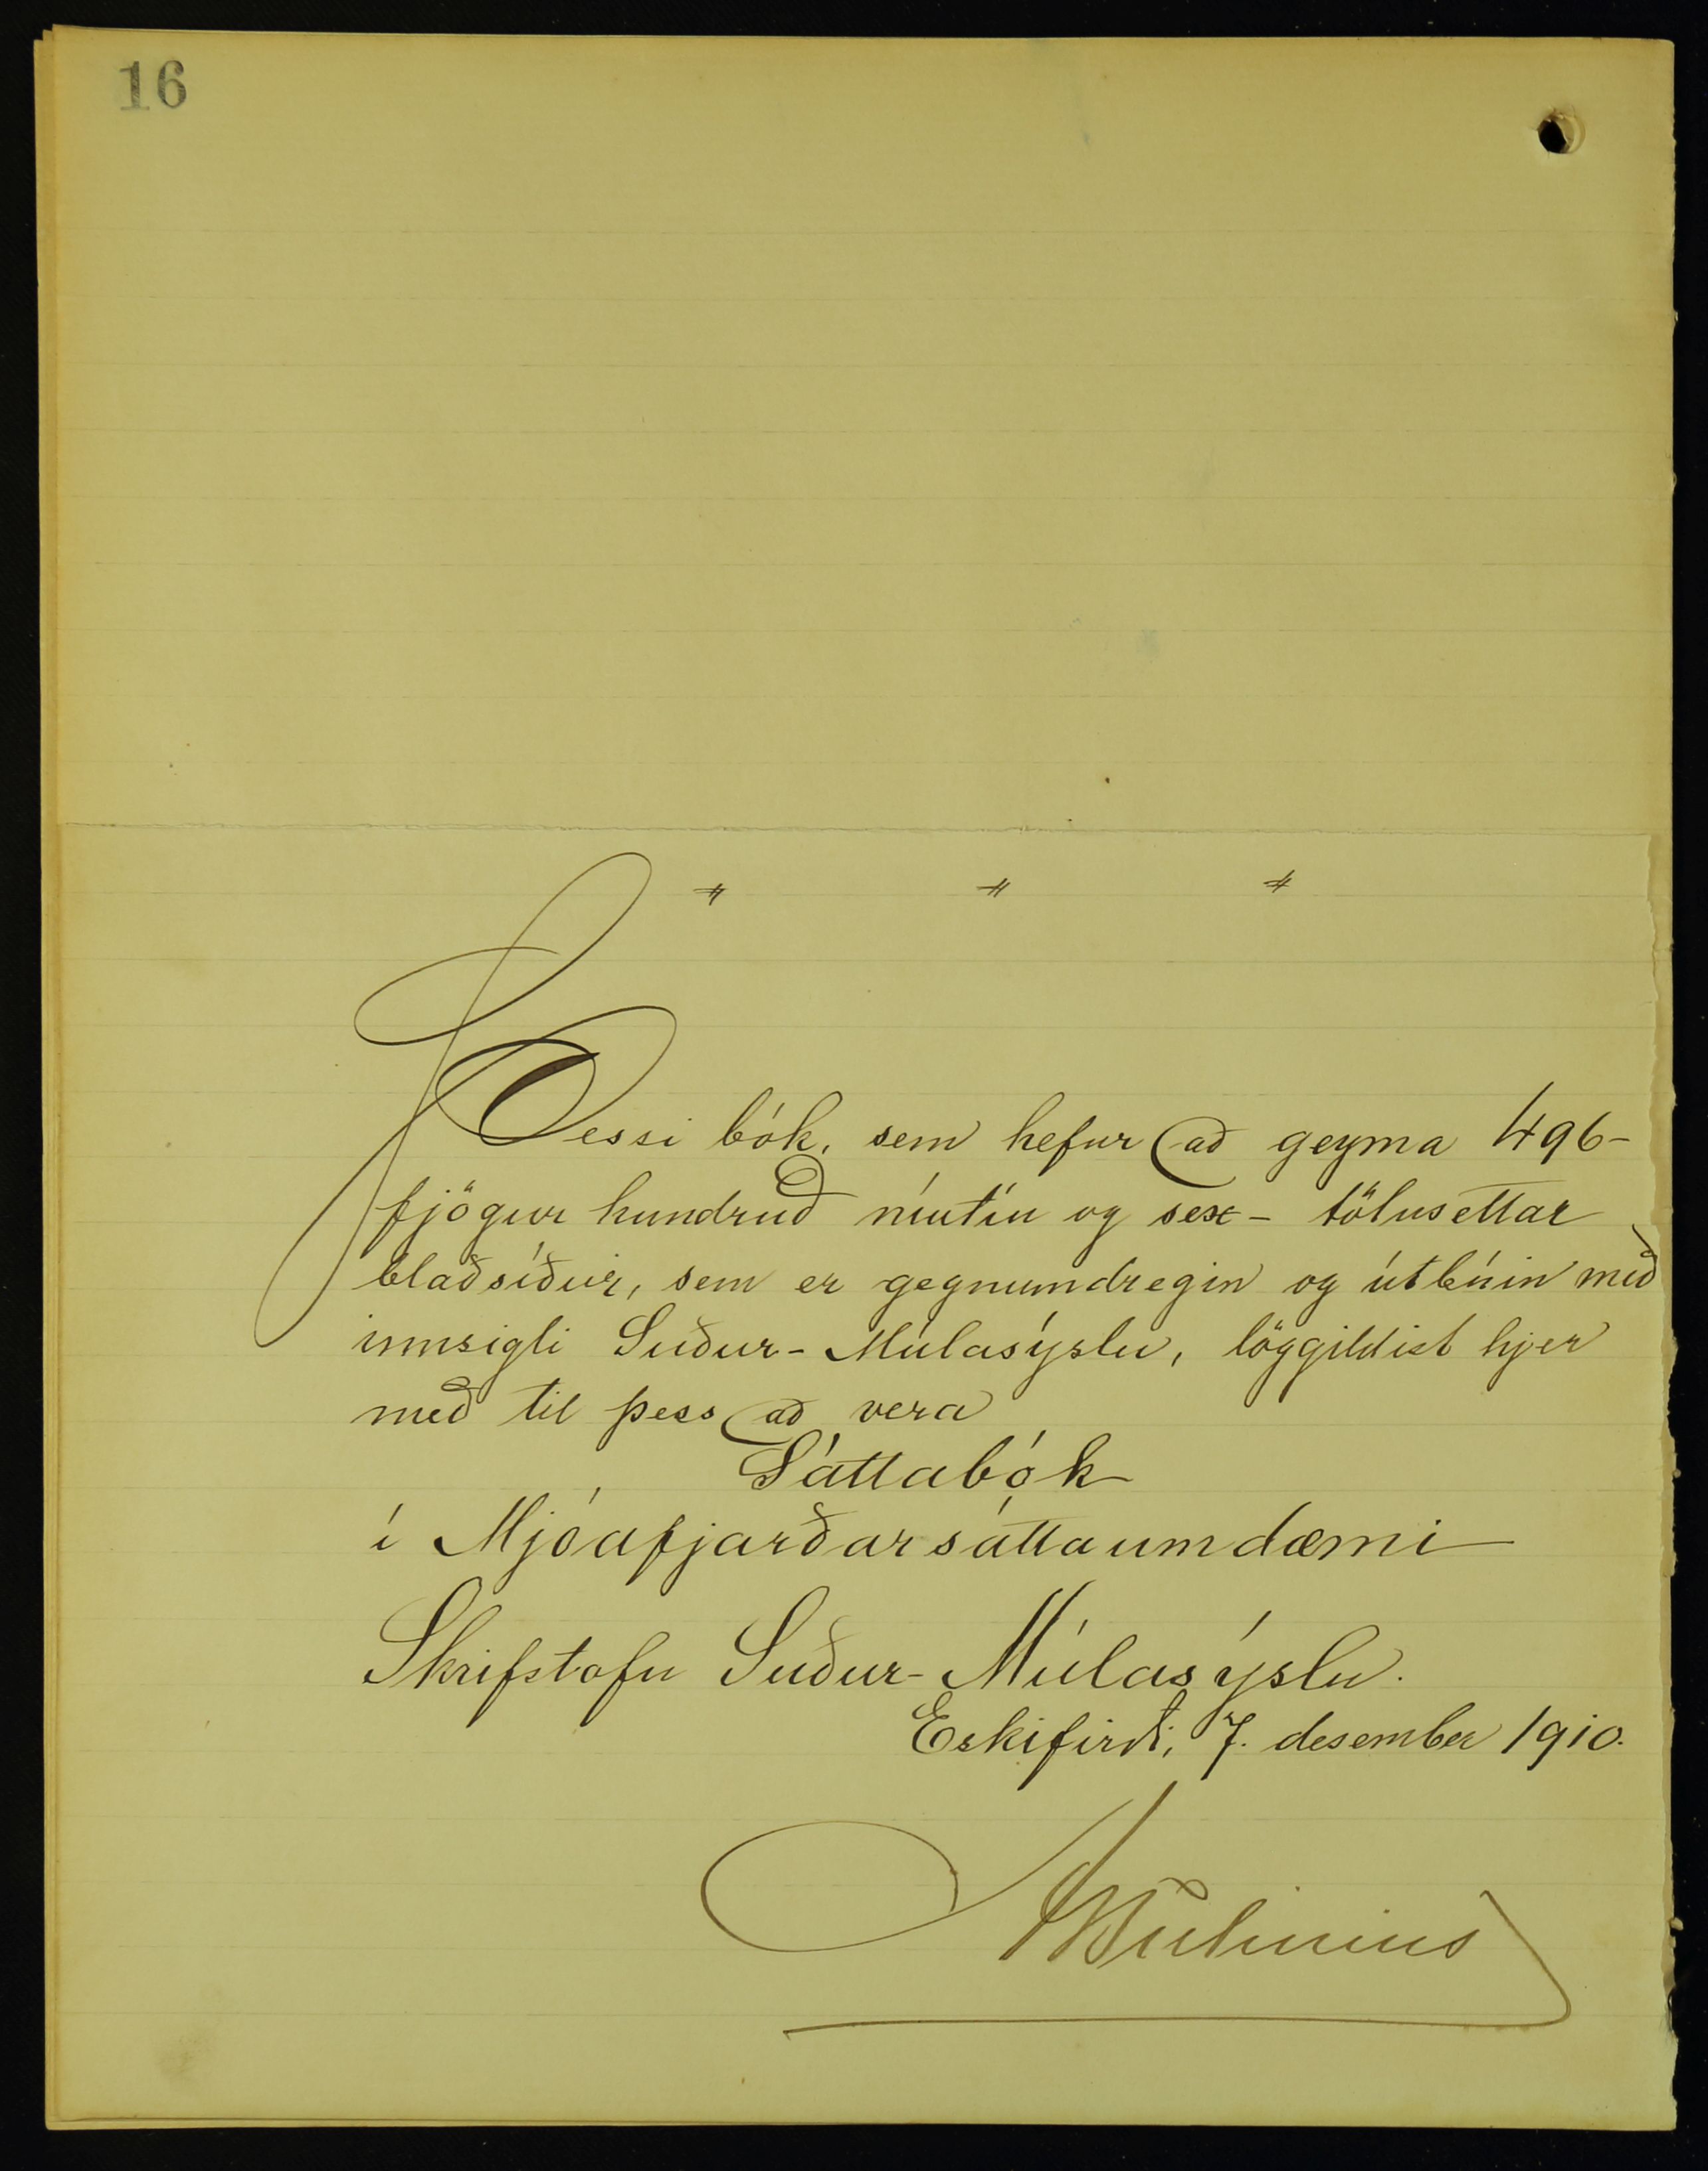 16
Þessi bók, sem hefur að geyma 496-
fjögur hundruð níutíu og sex - tölusettar
blaðsíður, sem er gegnumdregin og útbúin með
innsigli Suður-Múlasýslu, löggildist hjer
með til þess að vera
Sáttabók
í Mjóafjarðarsáttaumdæmi
Skrifstofu Suður-Múlasýslu.
Eskifirði, 7. desember 1910.
AVTulinius